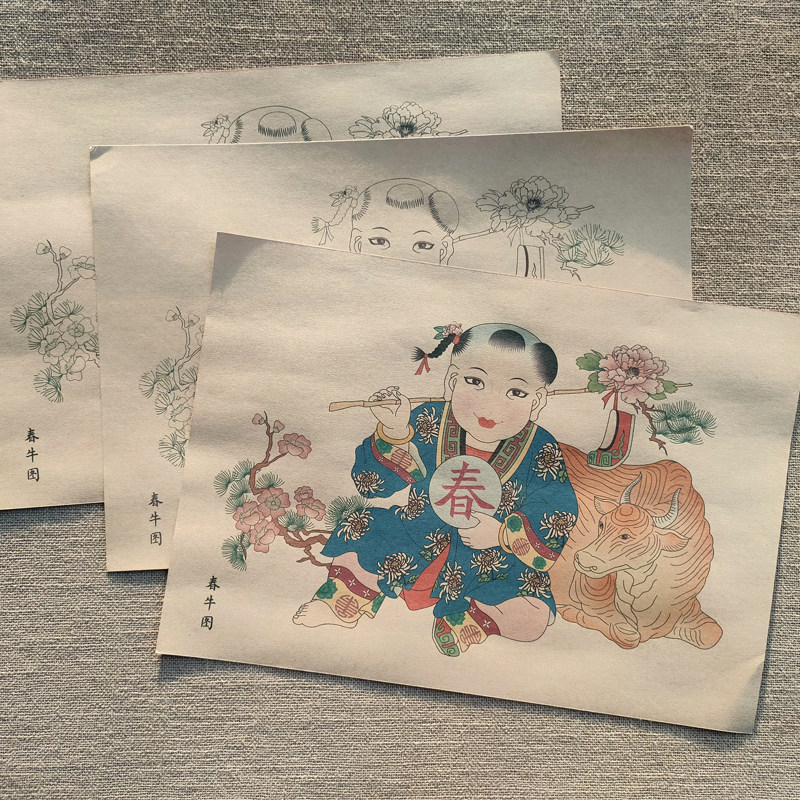 春牛图
春牛图
春牛图
春